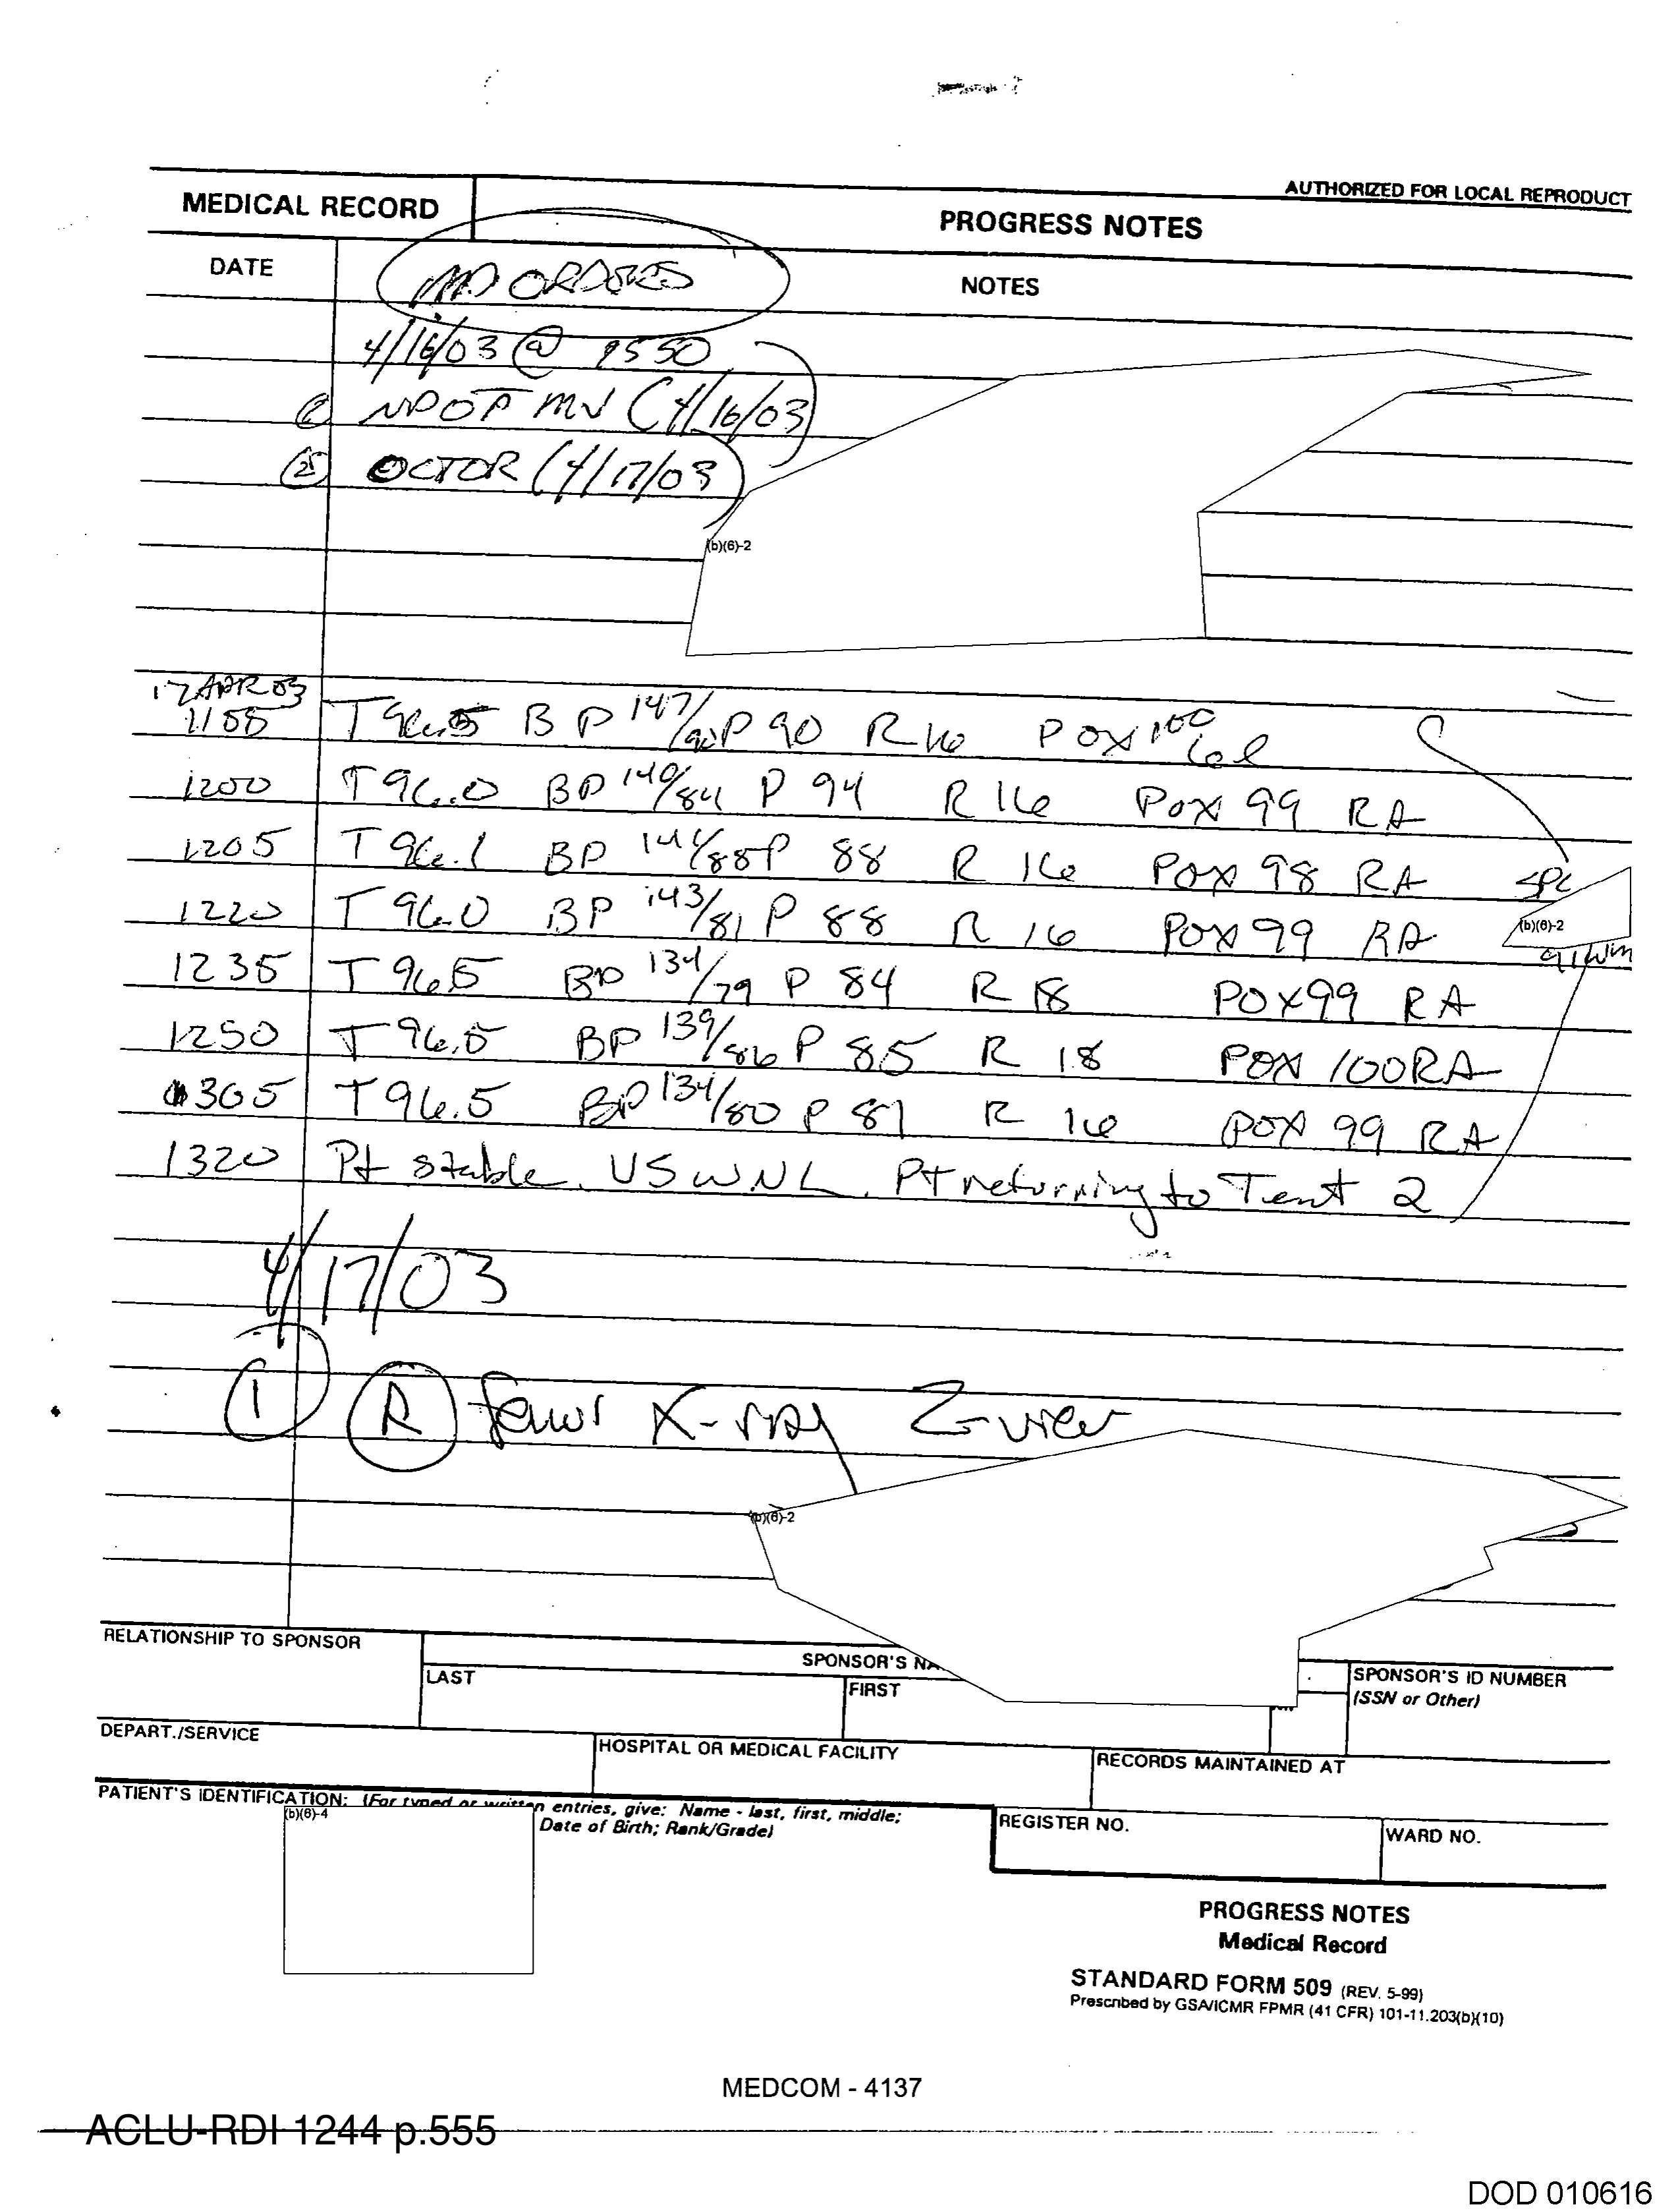 AUTHORIZED FOR LOCAL REPRODUCT
MEDICAL RECORD
PROGRESS NOTES
DATE
NOTES
MD ORDERS
4/16/03 @
NPO P MN (4/16/03)
② OCTOR (4/17/03)
(b)(6)-2
17 APR 03
T 96.5 BP 147/90 P 90 R 16 POX 100
1200 T 96.0 BP 140/84 P 94 R 16 POX 99 RA
1205 T 96.1 BP 141/88 P 88 R 16 POX 98 RA SPC
1220 T 96.0 BP 143/81 P 88 R 16 POX 99 RA
(b)(6)-2
1235 T 96.5 BP 134/79 P 84 R 18 POX 99 RA
1250 T 96.5 BP 139/86 P 85 R 18 POX 100 RA
1305 T 96.5 BP 134/80 P 81 R 16 POX 99 RA
1320 Pt stable. VSWNL. Pt returning to Tent 2
4/17/03
① Ⓡ femur X-ray 2-view
(b)(6)-2
RELATIONSHIP TO SPONSOR
SPONSOR'S NA
LAST
FIRST
SPONSOR'S ID NUMBER
(SSN or Other)
DEPART./SERVICE
HOSPITAL OR MEDICAL FACILITY
RECORDS MAINTAINED AT
PATIENT'S IDENTIFICATION: (For typed or written entries, give: Name - last, first, middle;
(b)(6)-4
Date of Birth; Rank/Grade)
REGISTER NO.
WARD NO.
PROGRESS NOTES
Medical Record
STANDARD FORM 509 (REV. 5-99)
Prescribed by GSA/ICMR FPMR (41 CFR) 101-11.203(b)(10)
MEDCOM - 4137
ACLU-RDI 1244 p.555
DOD 010616